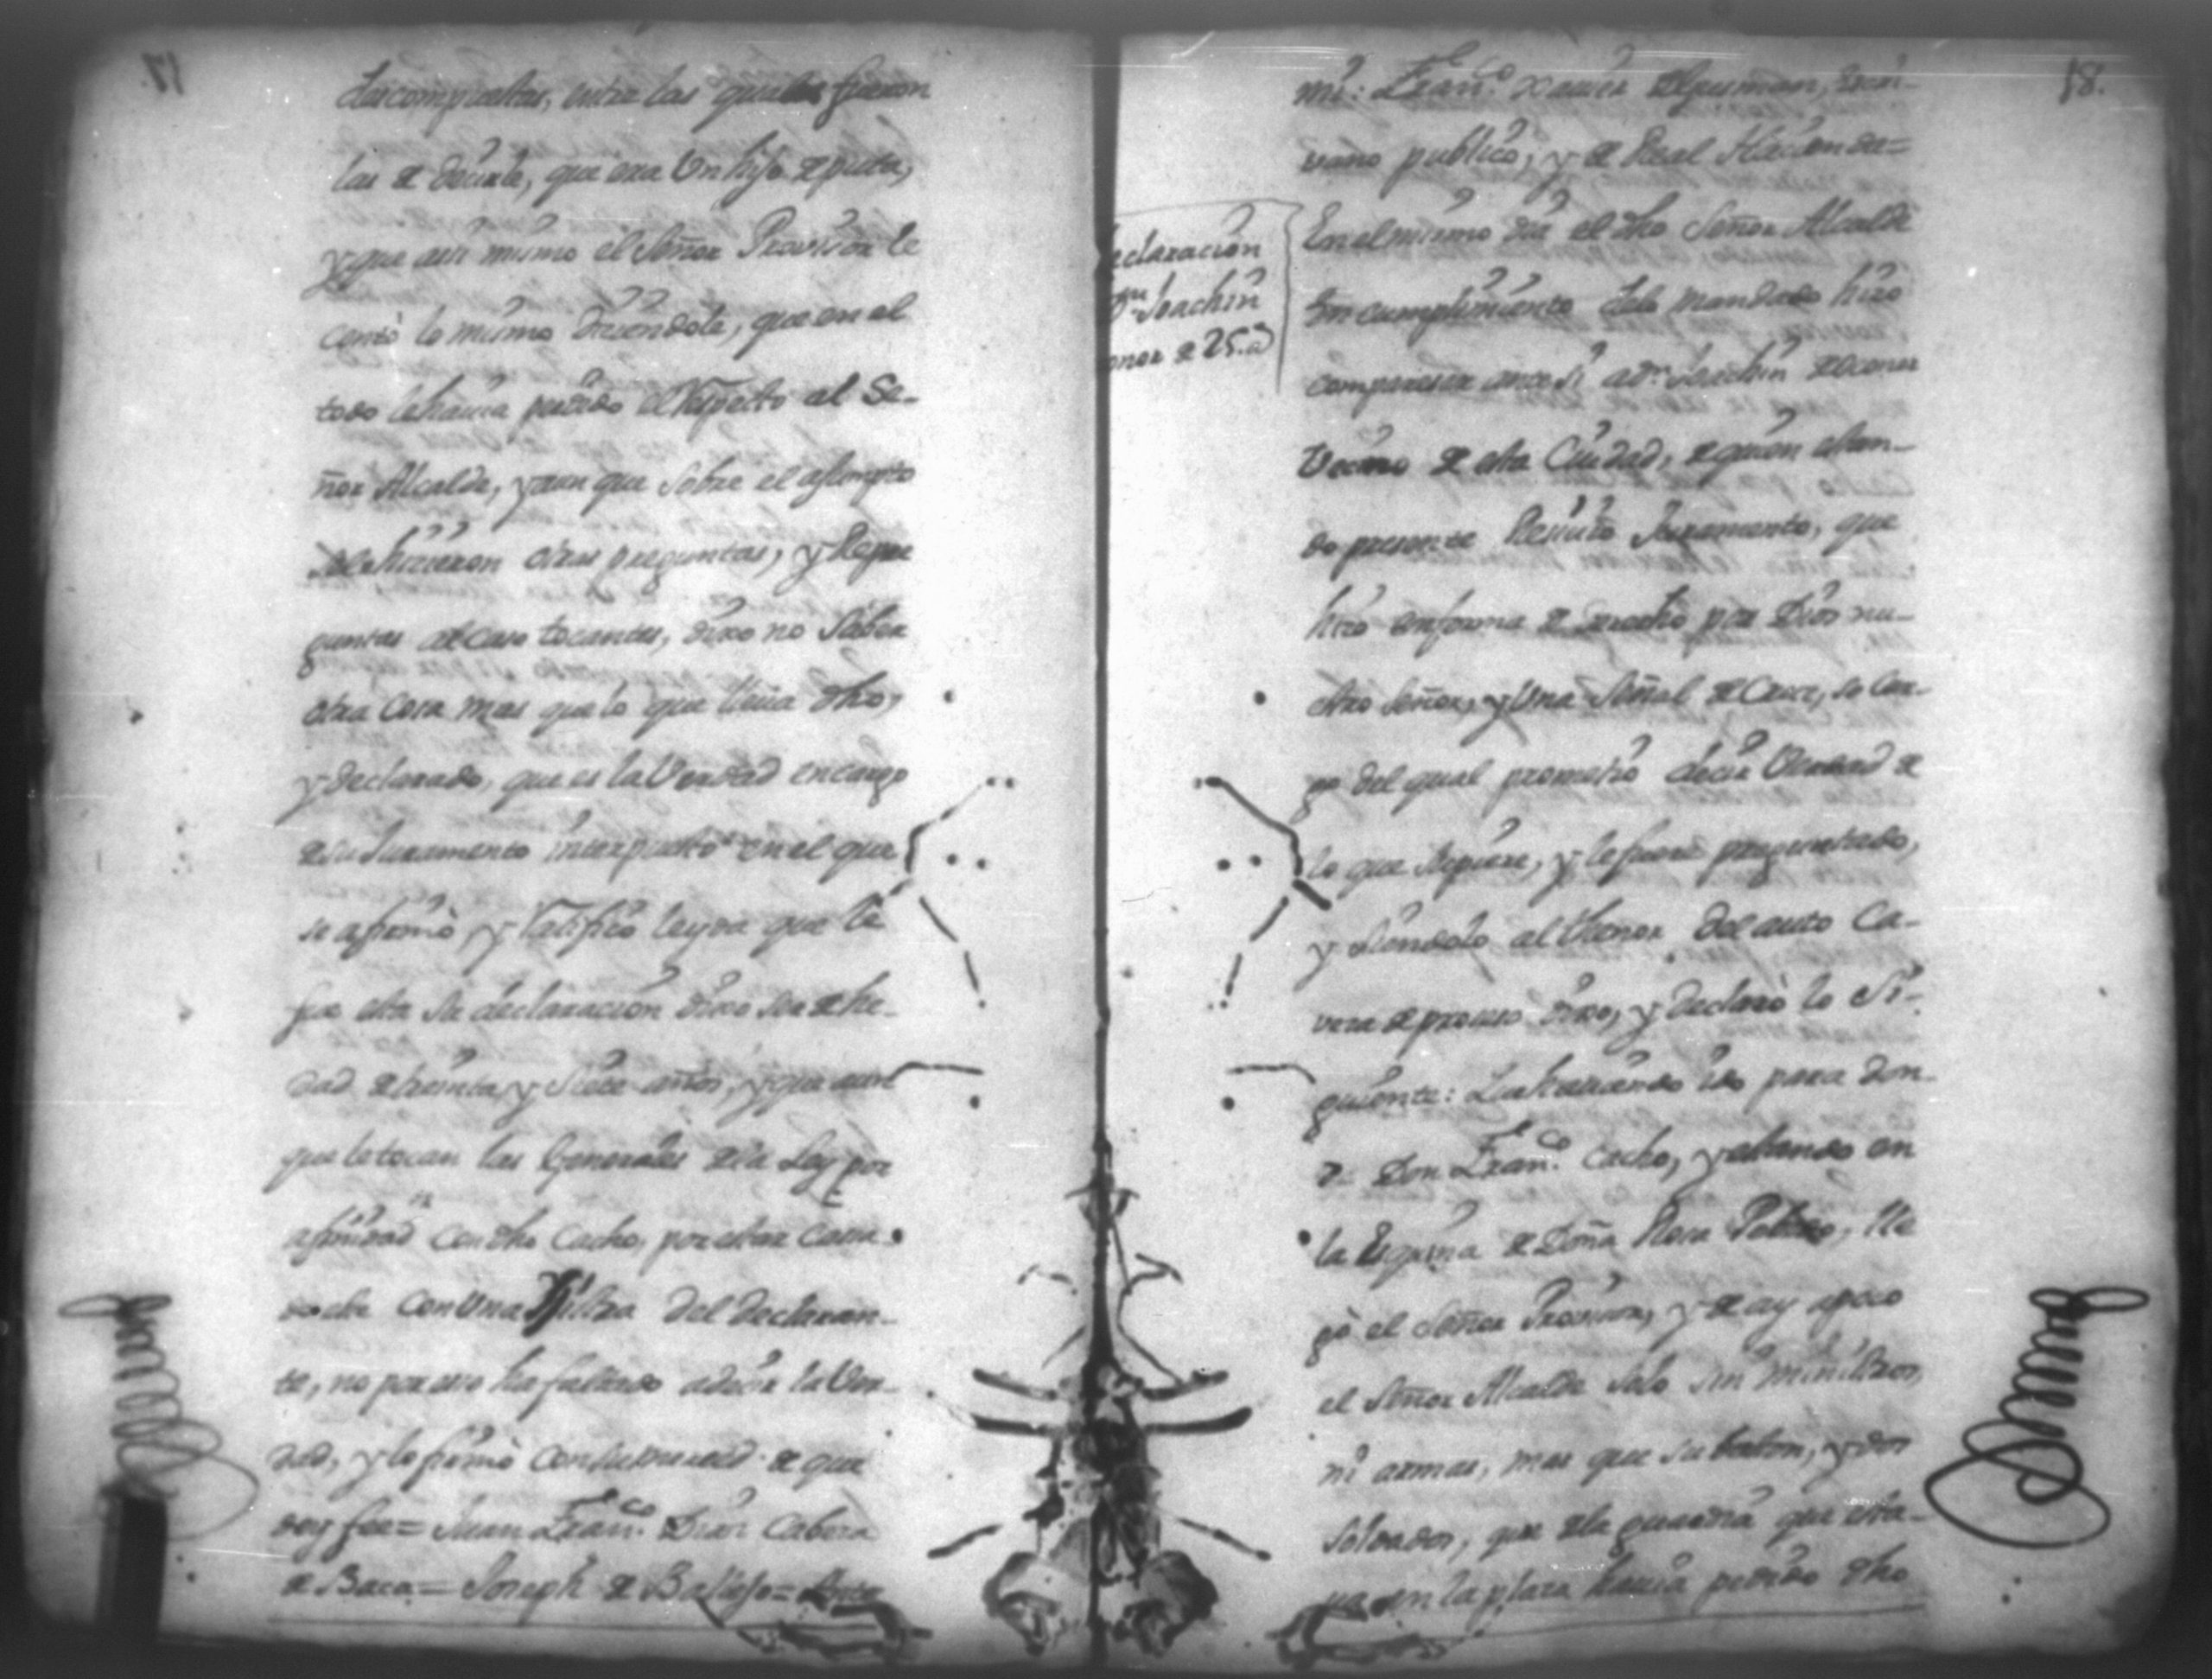 17.
descompuestas, entre las quales fueron
las de decirle, que era Un hijo de puta,
y que assi mismo el Señor Provisor le
contò lo mismo diciendole, que en el
todo le havia perdido el respecto al Se-
ñor Alcalde, y aun que sobre el assumpto
se le hicieron otras preguntas, y Repre
guntas al caso tocantes, dixo no saber
otra cosa mas que lo que lleva dho,
y declarado, que es la Verdad en cargo
de su Juramento interpuesto en el que
se afirmò, y ratificò leyda que le
fue esta su declaracion dixo ser de he-
dad de treinta, y siete años, y que aun
que le tocan las Generales de la Ley por
afinidad con dho Cacho, por estar casa
do este con Una del declaran-
te, no por esso ha faltado a decir la Ver-
dad, y lo firmò con su merced de que
doy fee= Juan Franco. Diaz Cabeza
de Baca= Joseph de Ballejo= Ante
18.
mi: Franco. Xavier de Guzman, Escri-
vano publico, y de Real Hacienda=
eclaracion
Dn. Joachin
onor de 25.a
En el mismo dia el dho Señor Alcalde
En cumplimiento delo mandado hizo
comparecer ante si a Dn. Joachin
Vecino de esta Ciudad, de quien estan-
do presente Reciviò Juramento, que
hizo en forma de derecho por Dios nu-
estro Señor, y Una Señal de Cruz, so car-
go del qual prometiò decir Verdad de
lo que supiere, y le fuere preguntado,
y siendolo al thenor del auto Ca-
veza de proceso dixo, y declarò lo Si-
guiente: Que haviendo ido para don-
de Don Franco. Cacho, y estando en
la Esquina de Doña Rosa llè
gò el Señor Provisor, y de ay apoco
el Señor Alcalde solo sin ministros,
ni armas, mas que su baston, y dos
soldados, que de la guardia que esta-
va en la plaza havia pedido dho